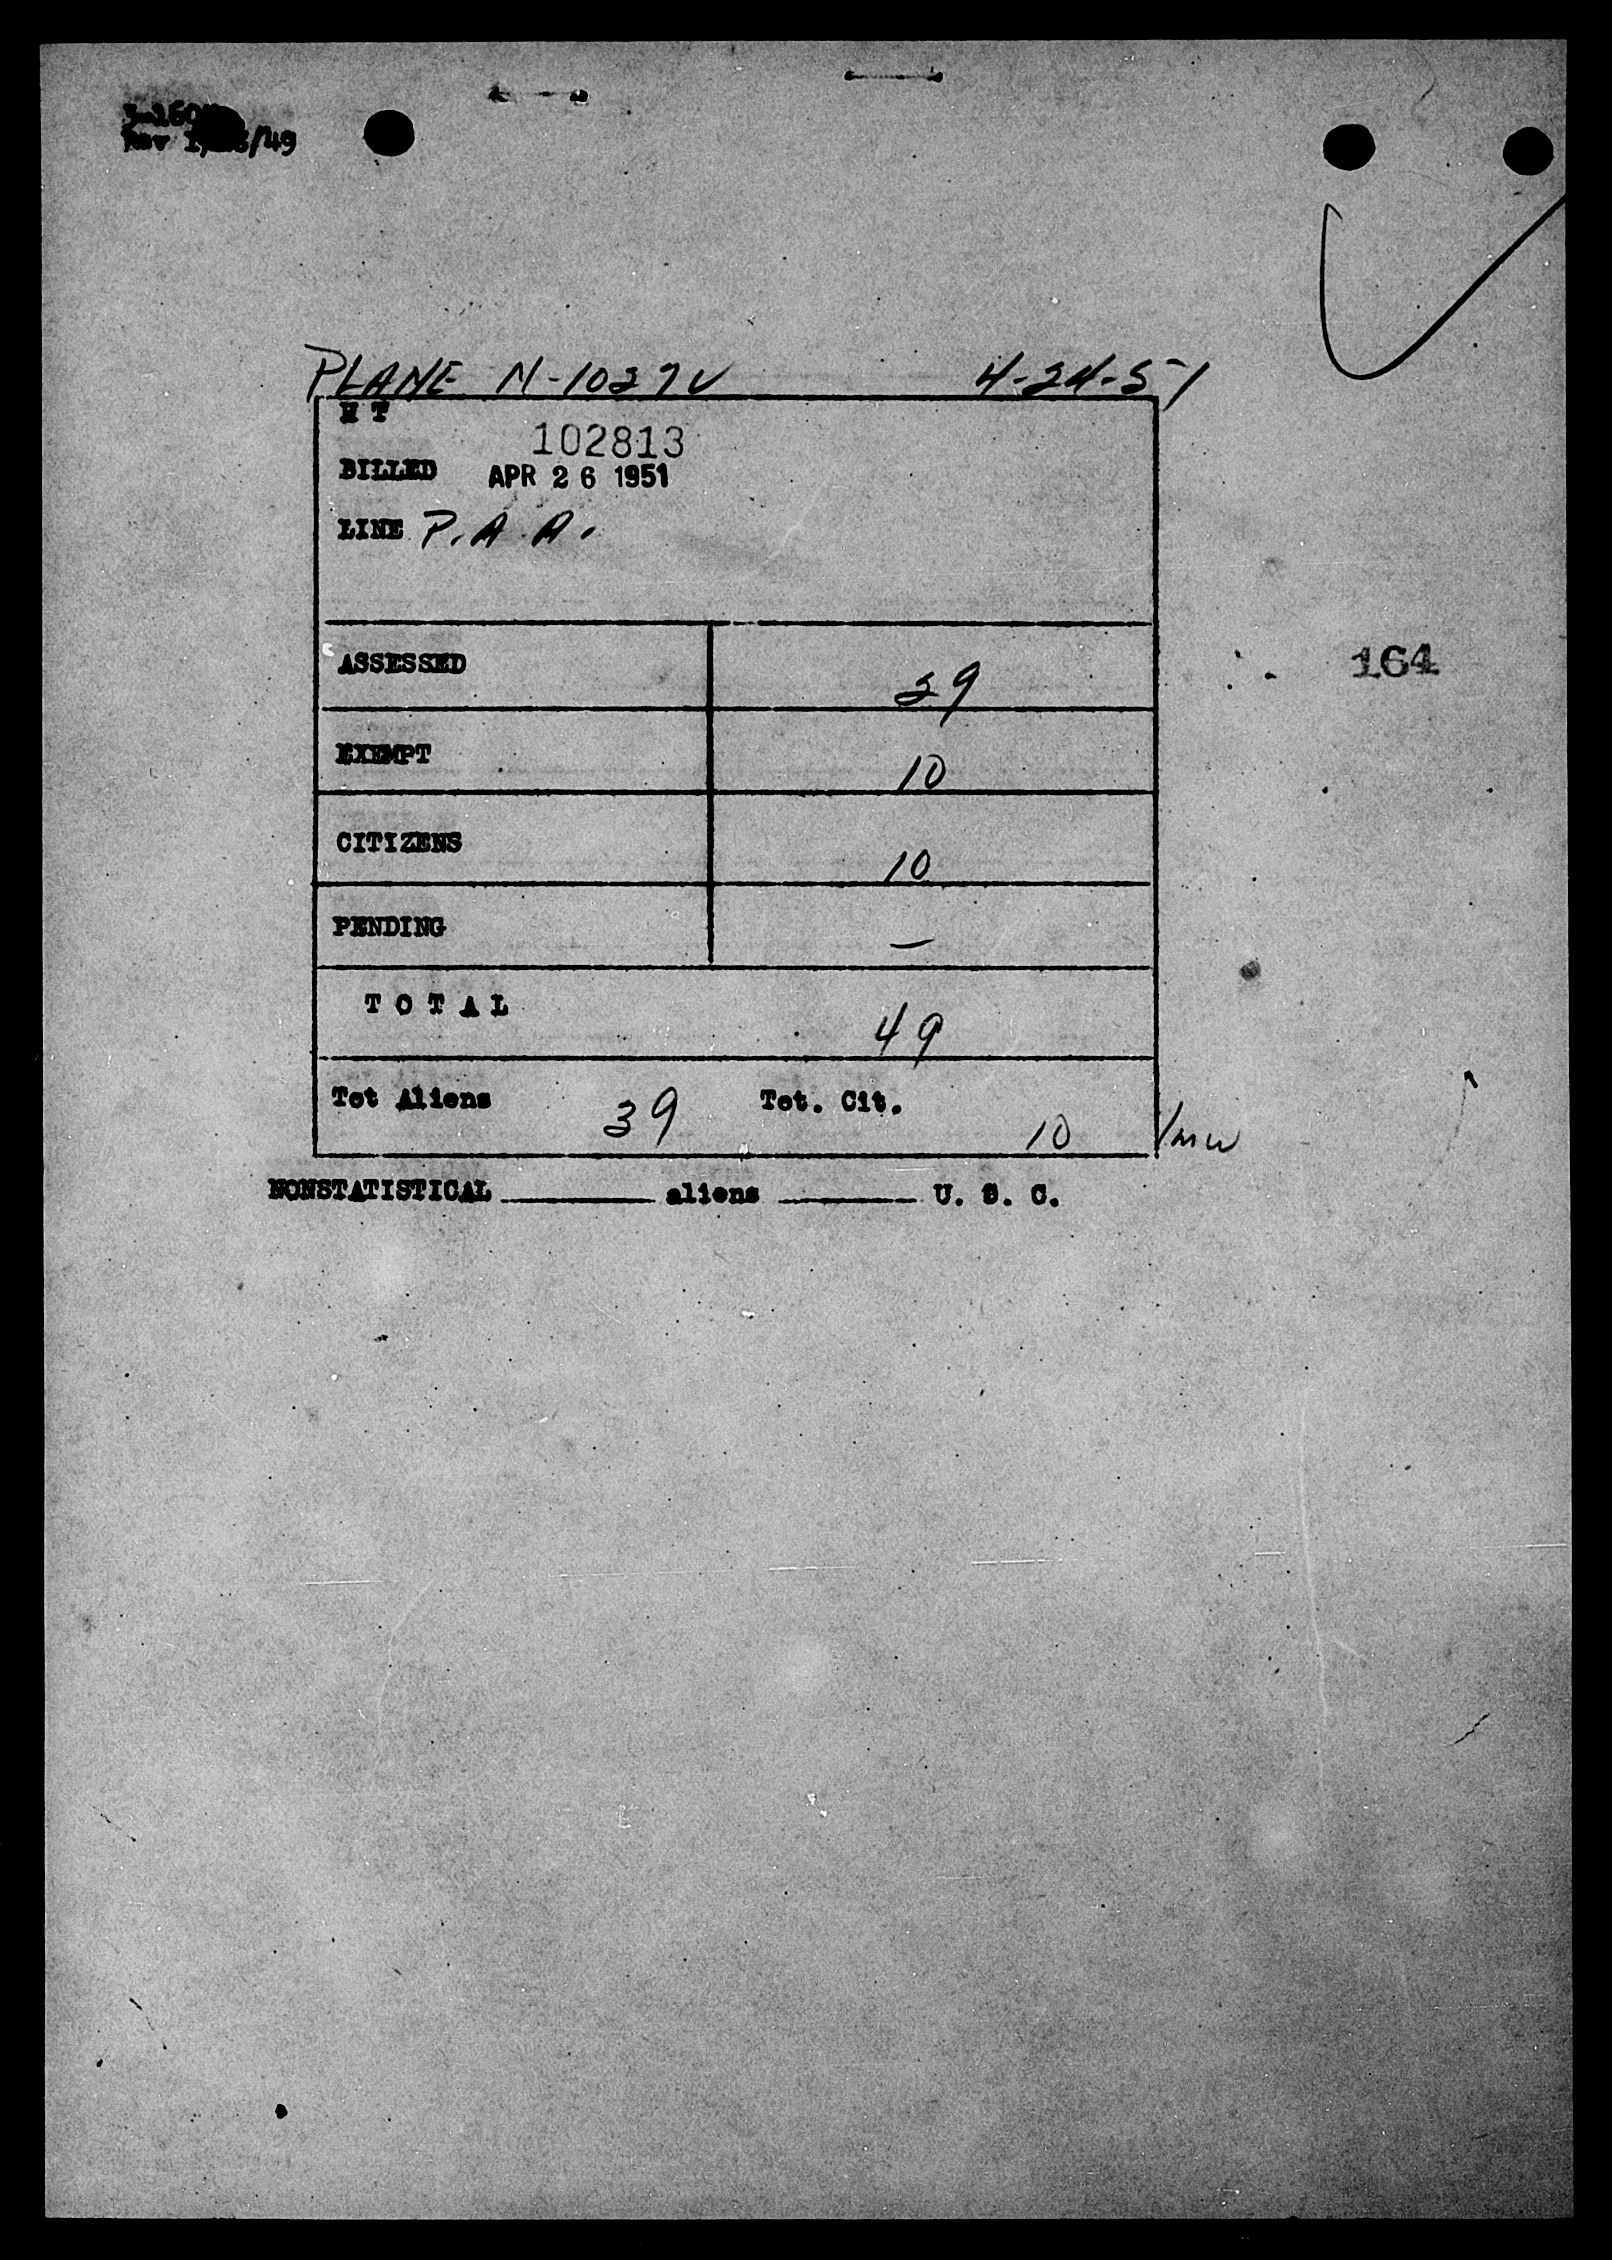 Rev 1/ /49
PLANE N-1027V 4-24-51
H T
102813
BILLED APR 26 1951
LINE P.A.A.
ASSESSED 29
164
EXEMPT 10
CITIZENS 10
PENDING —
TOTAL 49
Tot Aliens 39 Tot. Cit. 10 /mw
NONSTATISTICAL ______ aliens ______ U. S. C.